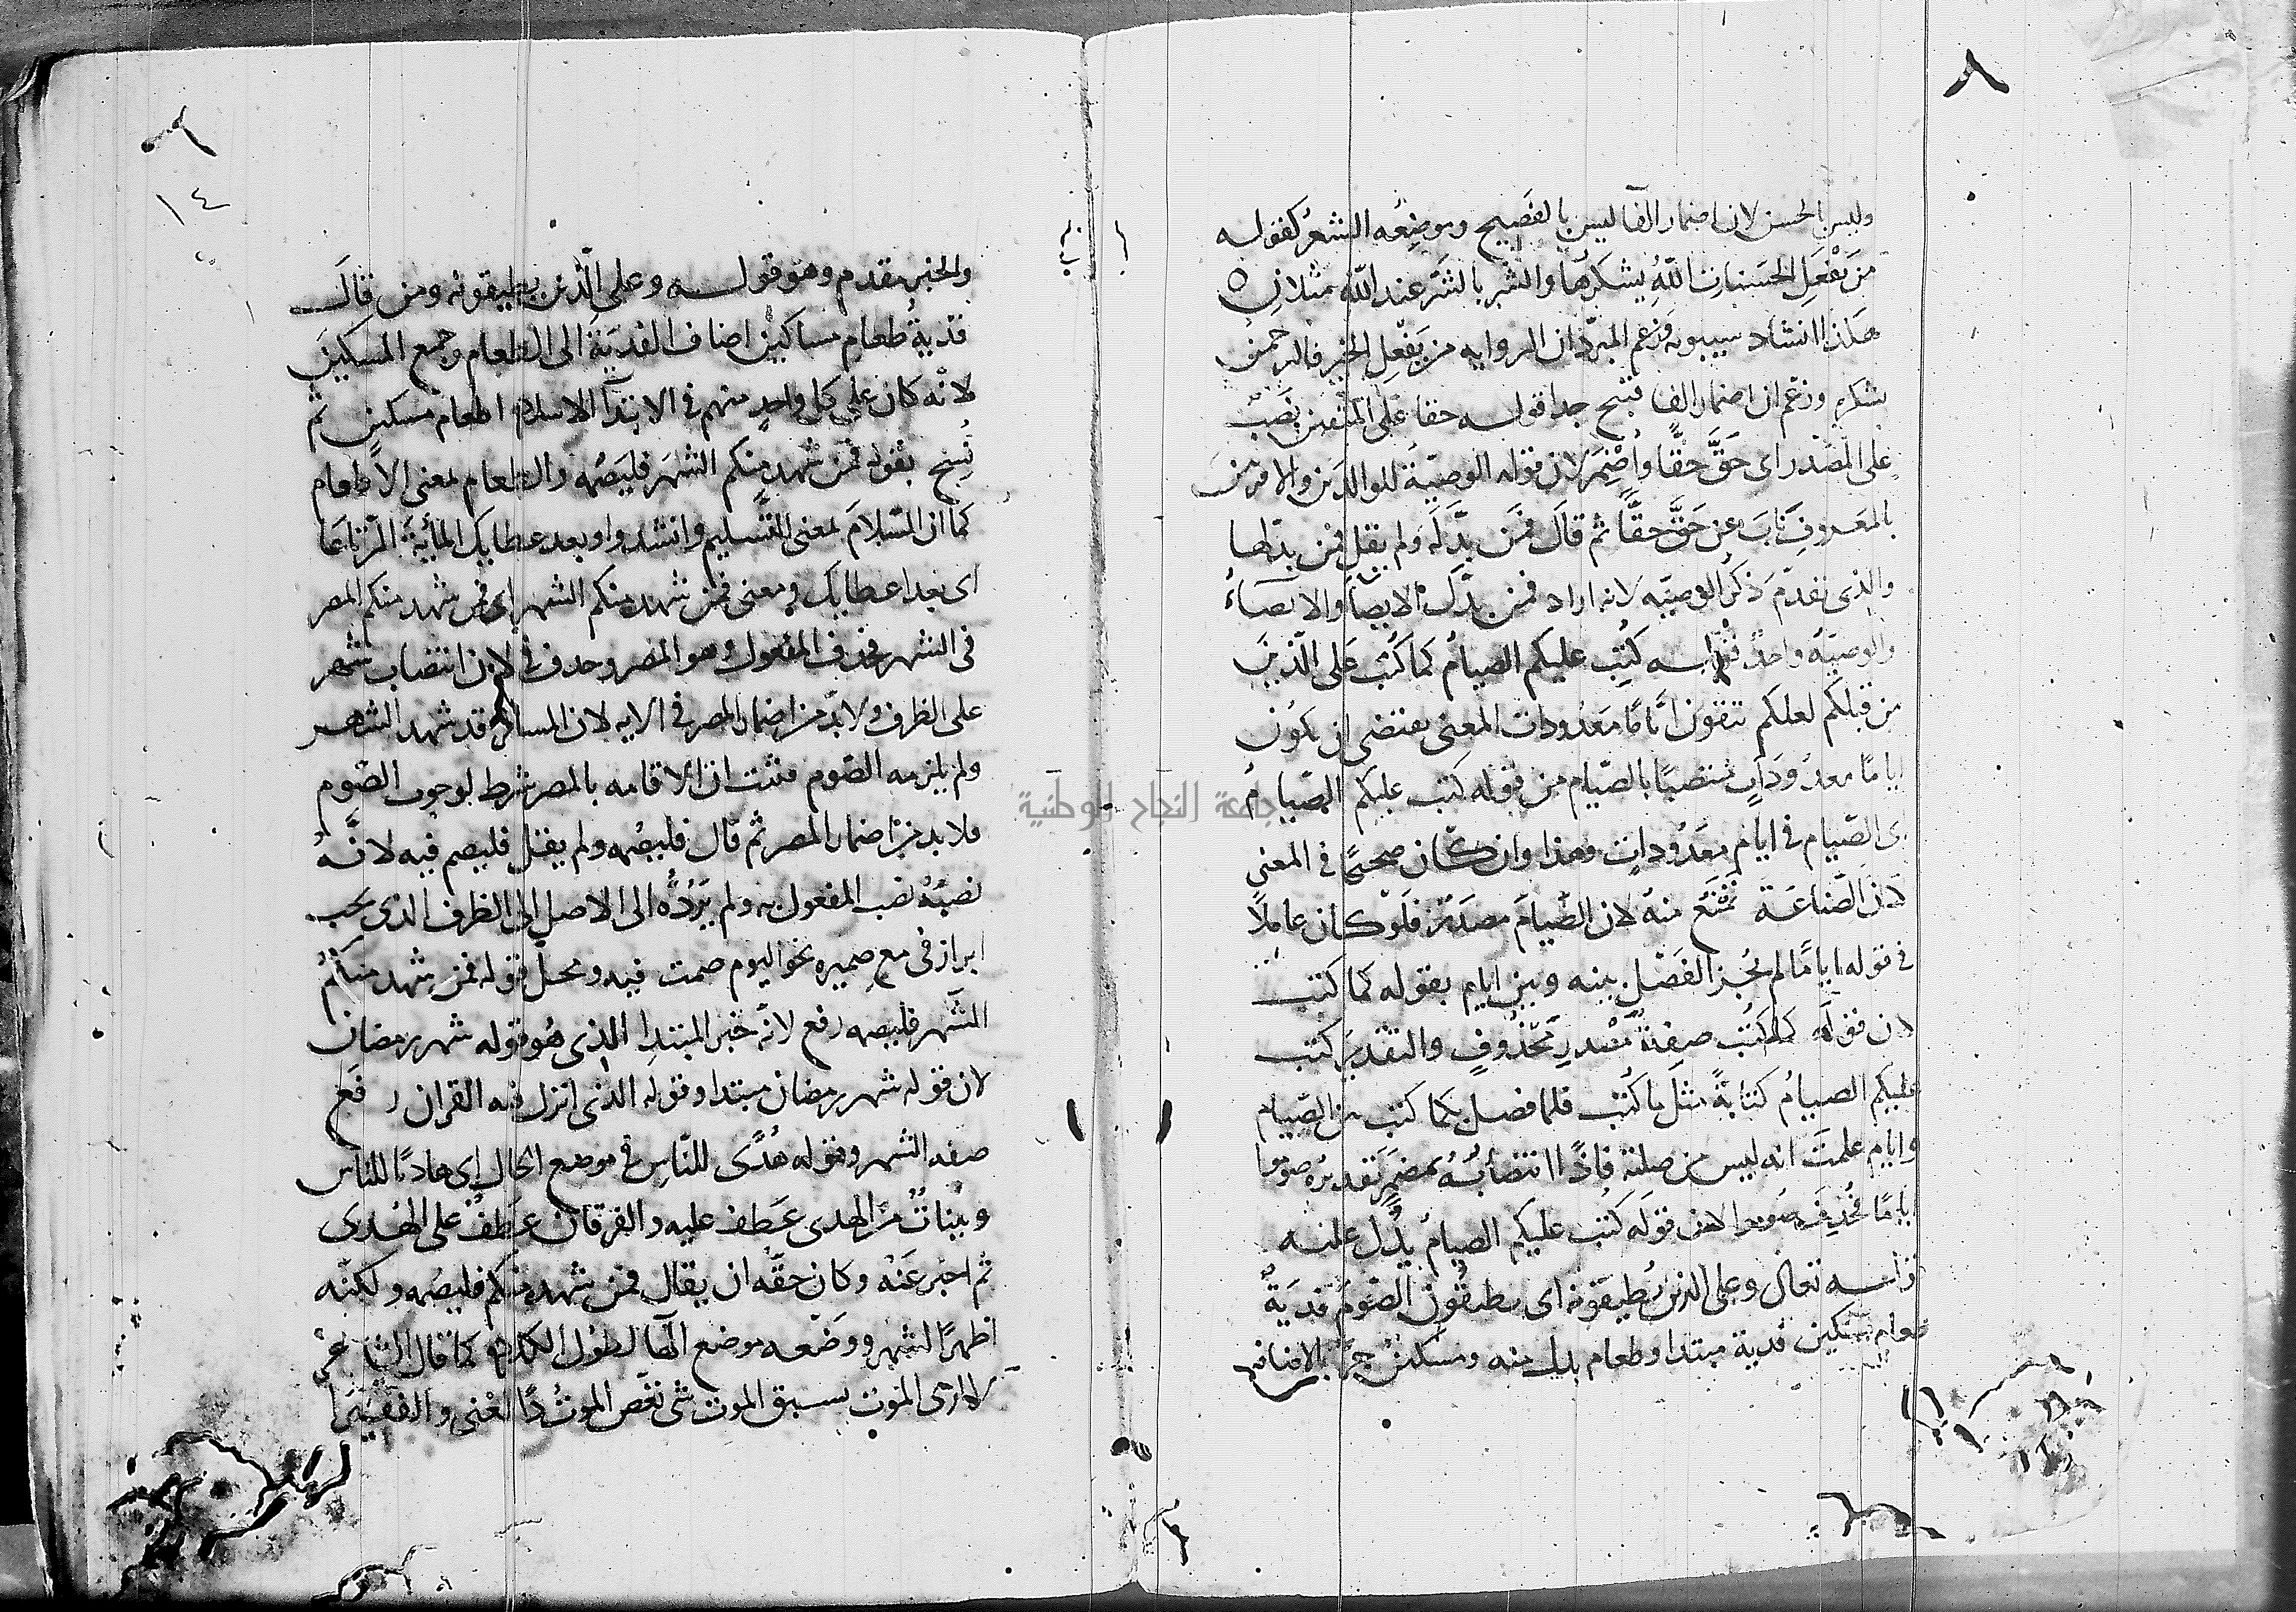 ٨
وليس بالحسن لان اضمار الفا ليس بالفصيح وموضعه الشعر كقوله
من يَفْعَلِ الحَسَناتِ اللّهُ يشكرها والشر بالشر عند الله مثلان ه
هكذا انشاد سيبويه وزعم المبرد ان الروايه من يَفْعَلِ الخير فالرحمن
يشكره وزعم ان اضمار الفا قبيح جدا قوله حقا على المتقين نصب
على المصدر اى حَقَّ حَقًّا واُضْمِرَ لان قوله الوصيّةَ للوالدَين والاقربين
بالمعروف نَابَ عن حَقَّ حقًّا ثم قالَ فمَن بدَّلَه ولم يقل فمن بدّلها
والذى تقدّم ذكرُ الوصيّه لانه اراد فمن بدّل الايصآ والايصآءُ
والوصيّه واحدٌ قوله كُتِبَ عليكم الصيامُ كما كُتبَ على الّذينَ
من قبلكم لعلكم تتقون ايَّامًا مَعْدُودات المعنى يقتضى ان يكون
اياما معدودَاتٍ منتصبًا بالصّيام من قوله كتب عليكم الصّيام
اى الصّيام فى ايام مَعدُوداتٍ وهذا وان كان صحيحًا فى المعنى
لان الصّناعَة تَمْنَع منه لان الصّيامَ مصدَرٌ فلَوْ كان عاملًا
فى قوله ايامًا لم يَجُز الفَصْل بينه وبين ايام بقوله كما كتب
لان قولَه كما كُتب صفةُ مَصْدرٍ مَحْذُوفٍ والتقدير كتب
عليكم الصيامُ كتابةً مثل ما كُتبَ فلما فصل بكما كتب بين الصّيام
وايام علمتَ انه ليس من صلته فاذًا انتصابُه بمضمرٍ تقديرُه صوموا
ايامًا فحُذِفَ صوموا لان قولَه كُتب عليكم الصيامُ يَدُلّ عليه
قوله تعالى وعلى الذين يُطيقونه اى يطيقُون الصّومَ فديَةٌ
طعام مسكين فدية مبتدا وطعام بدل منه ومسكين جرّ بالاضافه
٦
١٤
والخبر مقدم وهو قوله وعلى الّذين يطيقونه ومن قالَ
فديةُ طعام مساكين اضاف الفديَةَ الى الطعام وجمع المسكين
لانّه كان على كل واحدٍ منهم فى الابتدآ الاسلام اطعام مسكين ثم
نُسِخ بقوله فمَن شهد منكم الشهرَ فليَصُمه والطعام بمعنى الاطعام
كما ان السّلامَ بمعنى التّسليم وانشدوا وبعد عطايك المأيةَ الرّتاعَا
اى بعد اعطايك ومعنى فمن شهد منكم الشهر اى فمن شهد منكم المصر
فى الشهر فحذف المفعول وهو المصر وحذف فى لان انتصاب شهر
على الظرف ولا بدّ من اضمار المصر فى الايه لان المسافر قد شهد الشهر
ولم يلزمه الصّوم فثبت ان الاقامه بالمصر شرط لوجوب الصّوم
فلا بد من اضمار المصر ثم قال فليصُمه ولم يقل فليصم فيه لانَّهُ
نصبَهُ نصب المفعول به ولم يَرُدُّه الى الاصل اى الظرف الذى يجب
ابراز فى مع ضميره نحو اليوم صمت فيه ومحلّ قوله فمن شهد منكُمُ
الشَهر فليصمه رفع لانّه خبر المبتدا الذى هُو قوله شهر رمضان
لان قوله شهر رمضان مبتدا وقوله الذى انزل فيه القران رفَع
صفه الشهر وقوله هُدًى للنّاسِ فى موضع الحال اى هاديًا للناس
وبيّناتٍ من الهدى عَطف عليه والفرقان عَطفٌ على الهُدى
ثم اخبر عَنْه وكان حقّه ان يقال فمن شهده منكم فليصُمه ولكنّه
اظهرَ الشهرَ ووَضَعه موضع الهآ لطول الكلام كما قال الشاعر
لا ارى الموتَ يسبق الموت شى نغّص الموتُ ذا الغنى والفقيرا
جامعة النجاح الوطنية